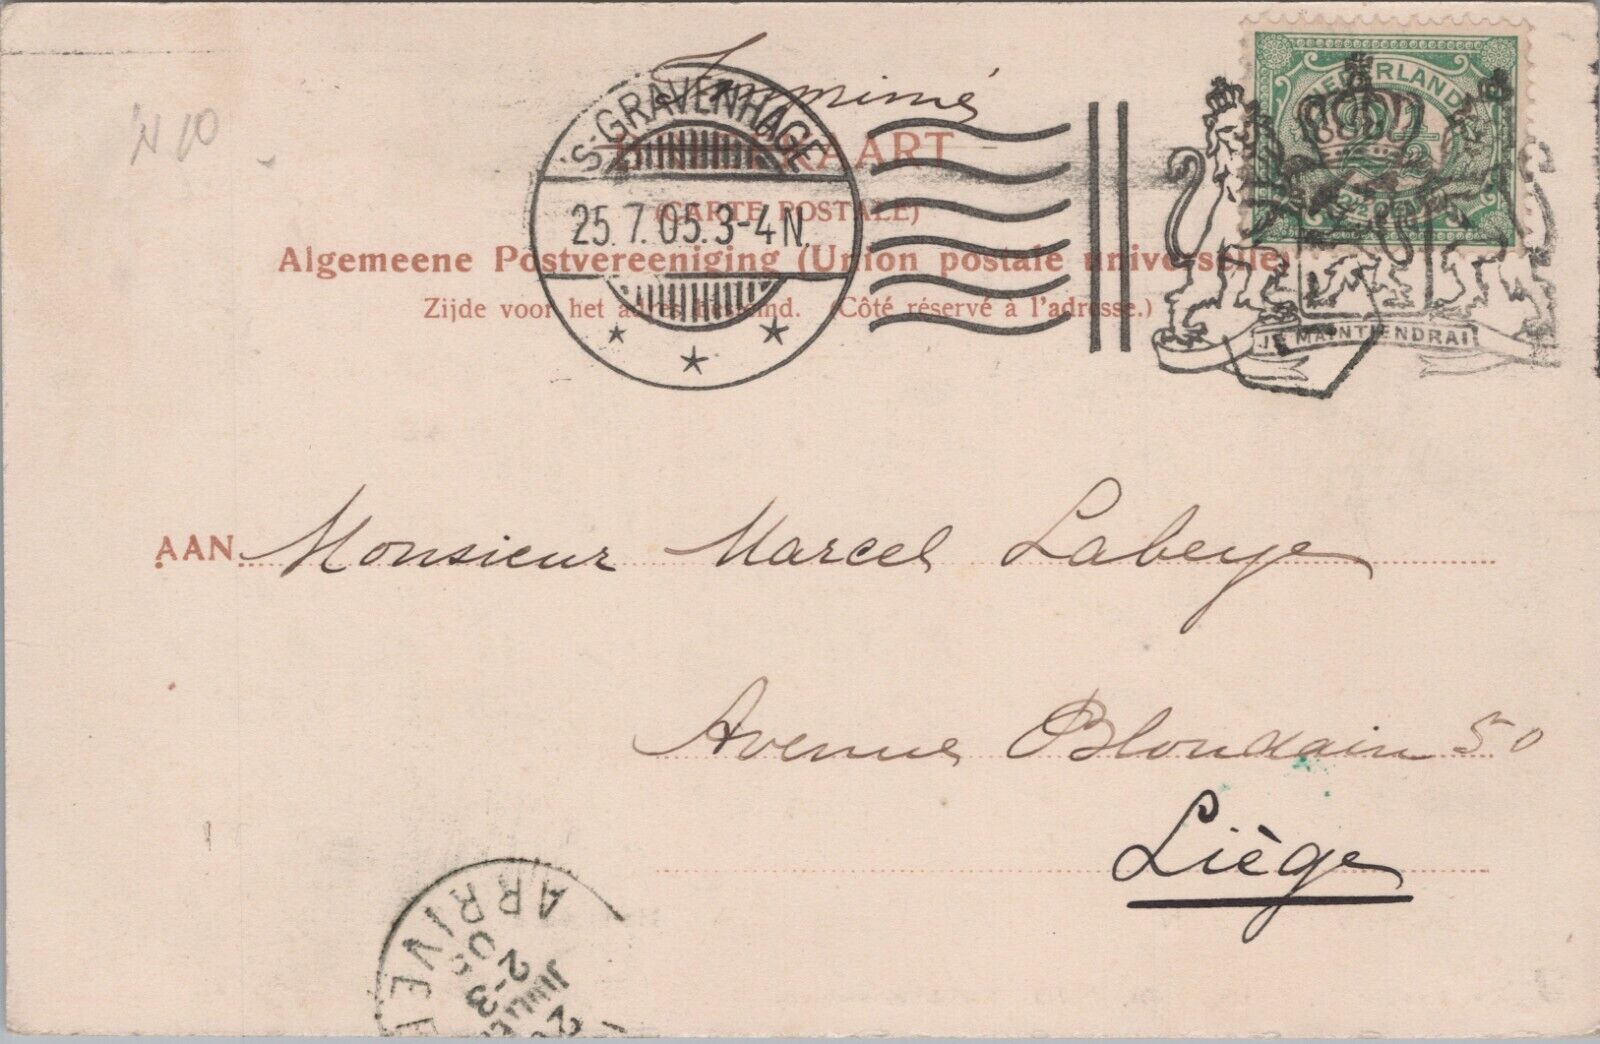 Imprimé
'S-GRAVENHAGE
25.7.05.3-4N.
NEDERLAND
2½
BRIEFKAART
(CARTE POSTALE)
Algemeene Postvereeniging (Union postale universelle)
Zijde voor het adres bestemd. (Côté réservé à l'adresse.)
JE MAINTIENDRAI
AAN Monsieur Marcel Labeye
Avenue Blondain 50
Liège
ARRIVEE
2-3
JUILLET
05